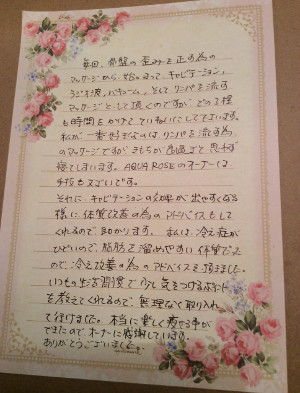 毎回、骨盤の歪みを正す為の
マッサージから始まって、キャビテーション、
ラジオ波、バキューム、そして リンパを流す
マッサージとして頂くのですが、どの工程
も時間をかけて ていねいにして下さいます。
私が一番好きなのは リンパを流す為
のマッサージですが きもちが 良過ぎて 思わず
寝てしまいます。AQUA ROSEのオーナーは
手技もスゴイです。
それに、キャビテーションの効果が 出やすくなる
様に 体質改善の為の アドバイスもして
くれるので 助かります。私は、冷え症が
ひどいので、脂肪を溜めやすい 体質だった
ので、冷え改善の為の アドバイスを 頂きました。
いつもの生活習慣で 少し気をつける
を教えてくれるので、無理なく取り入れ
て行けました。本当に楽しく痩せる事が
できたので オーナーに感謝しています。
ありがとうございました。